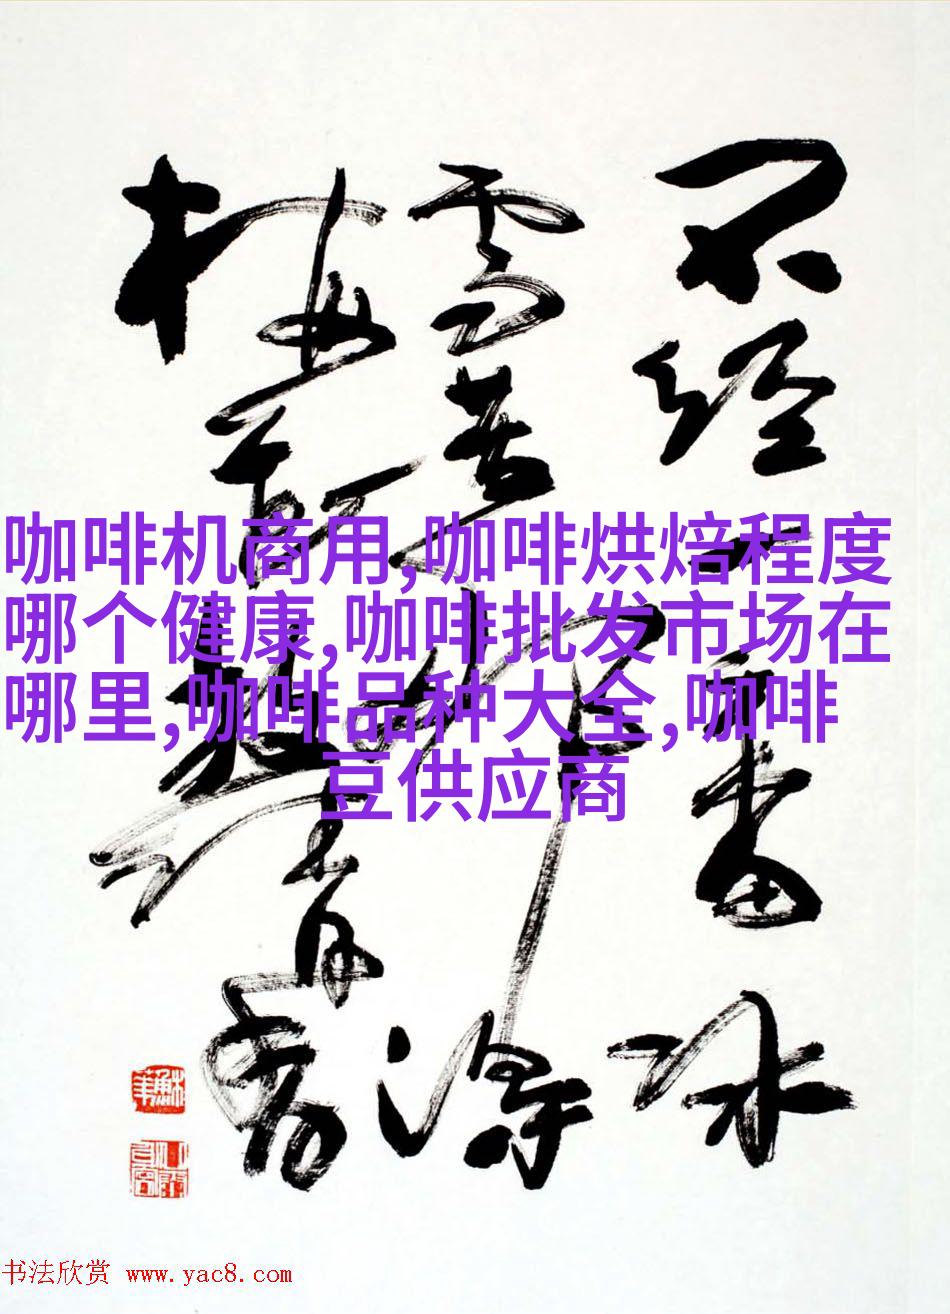 不经一番冰
雪苦那得
梅清香
咖啡机商用,咖啡烘焙程度
哪个健康,咖啡批发市场在
哪里,咖啡品种大全,咖啡
豆供应商
书法欣赏 www.yac8.com